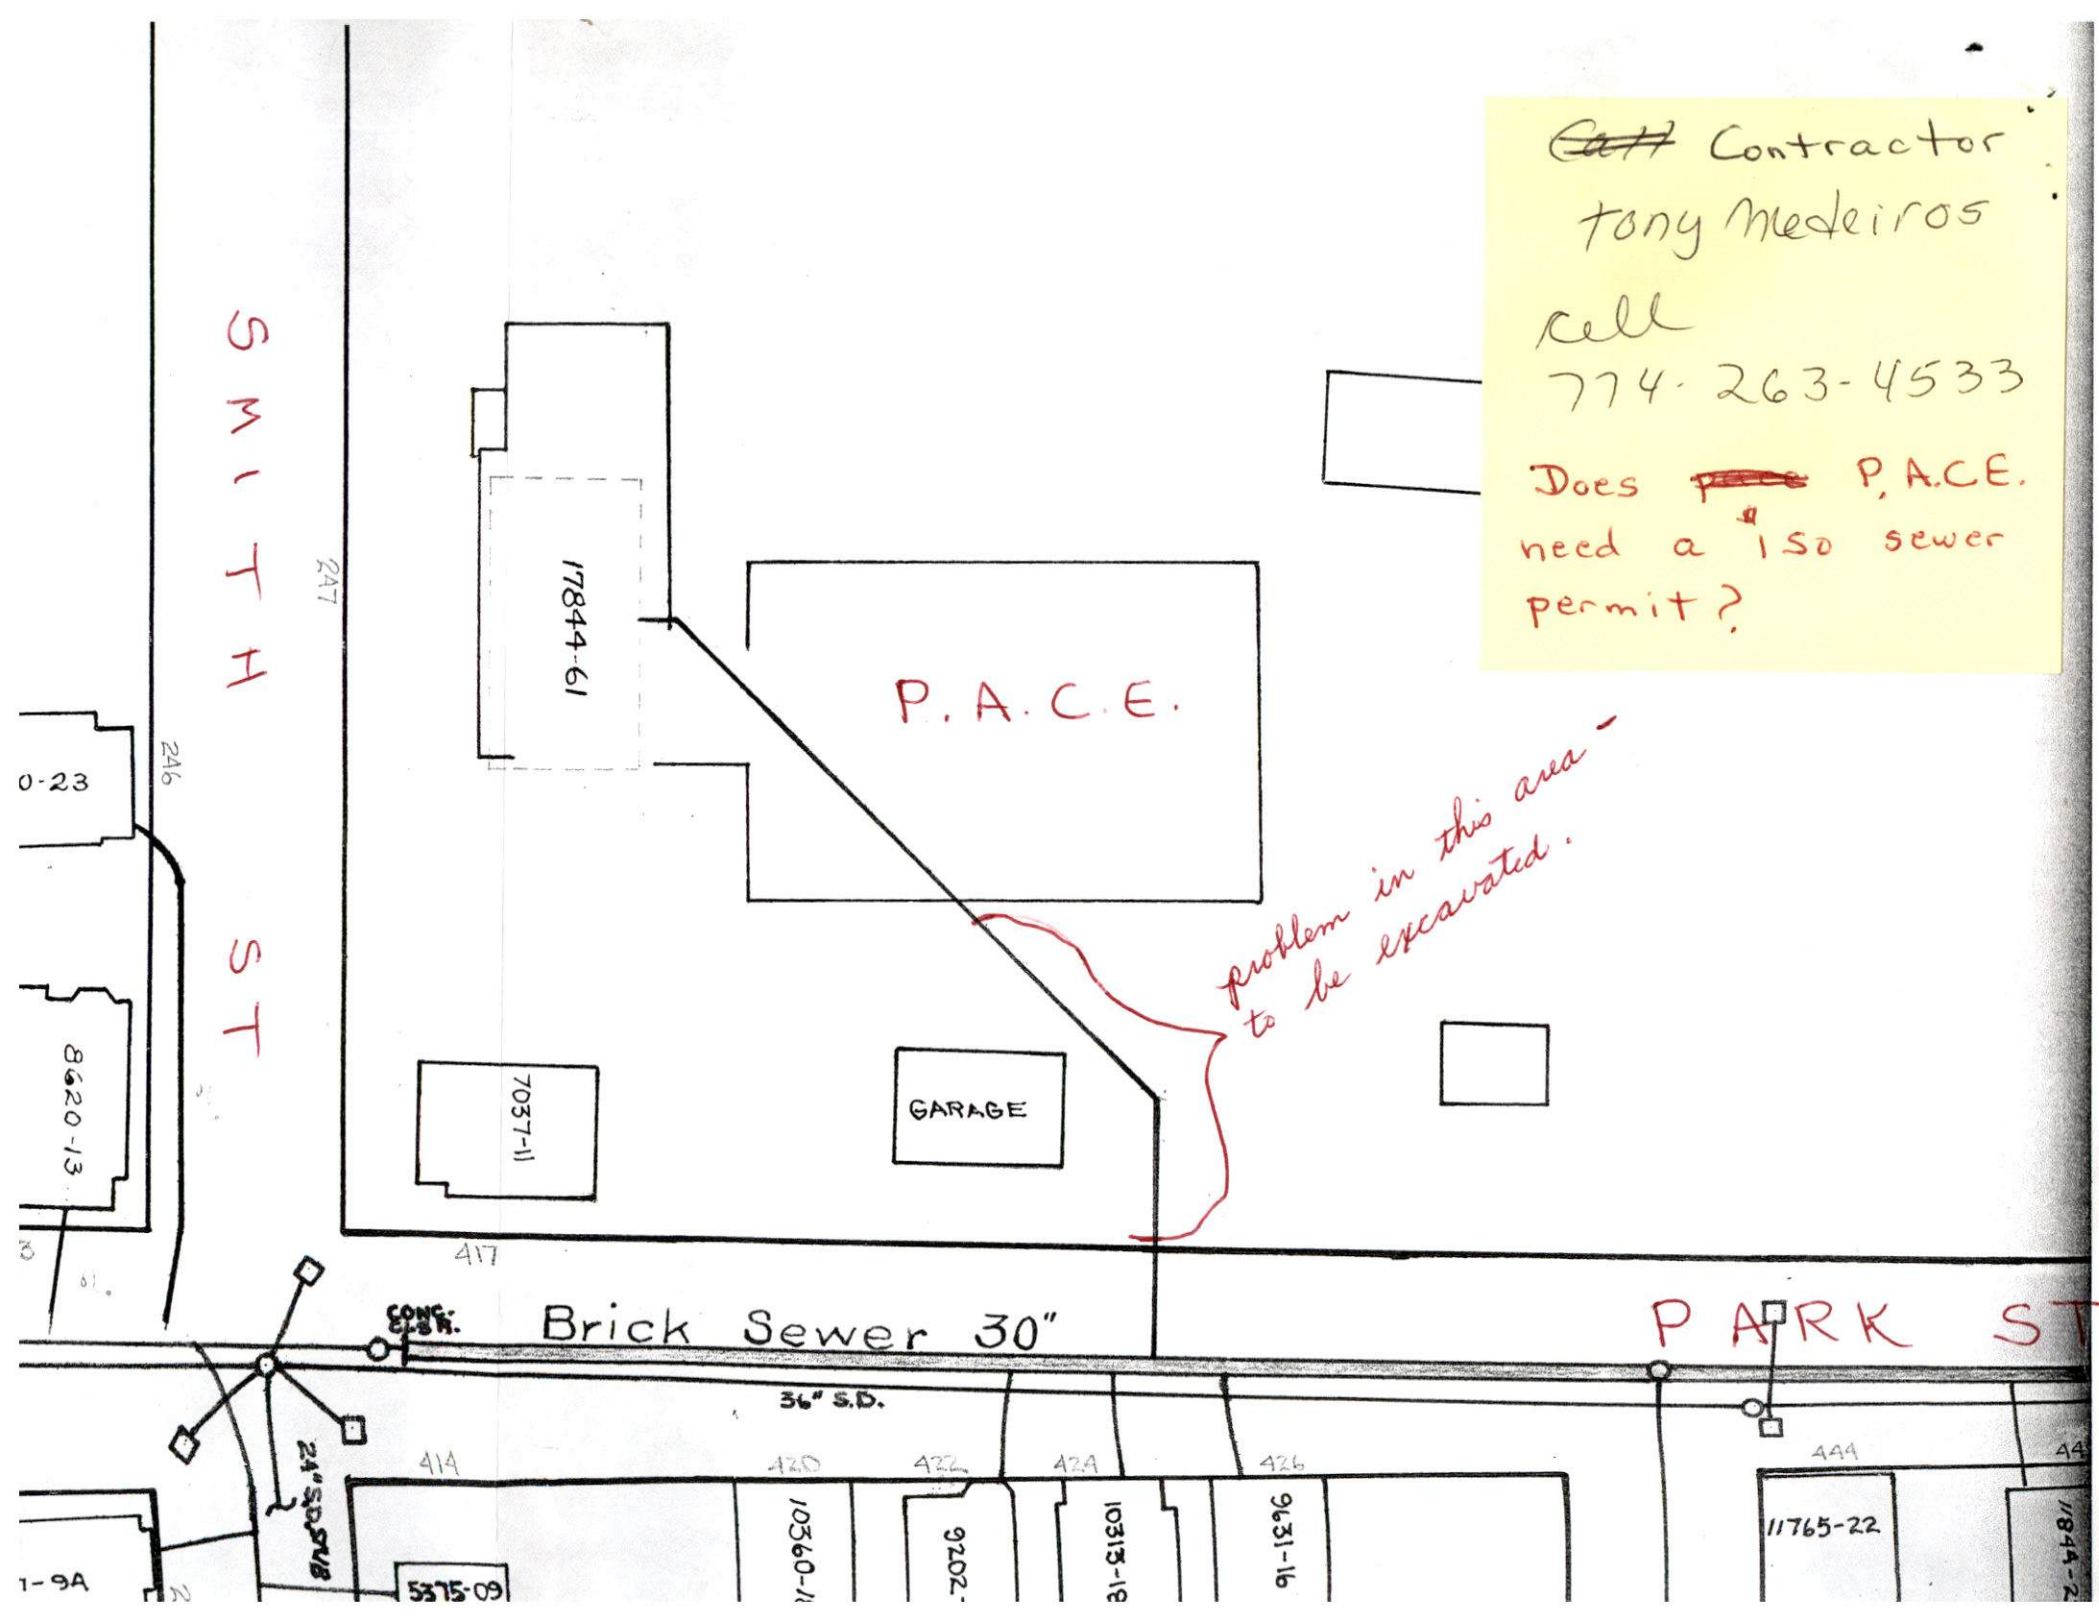 Contractor
tony Medeiros
cell
774-263-4533
Does P.A.C.E.
need a $150 sewer
permit?
SMITH ST
247
246
17844-61
P.A.C.E.
problem in this area -
to be excavated.
0-23
8620-13
7037-11
GARAGE
417
3
CONC.
Brick Sewer 30"
PARK ST
36" S.D.
24" S.D. STUB
414
420
422
424
426
444
44
10360-1
9202-
10313-18
9631-16
11765-22
11844-2
1-9A
2
5375-09